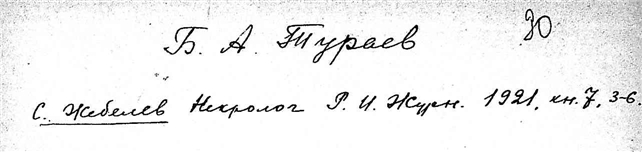 30
Б. А. Тураев
С. Жебелев Некролог Р. И. Журн. 1921, кн. 7, 3-6.